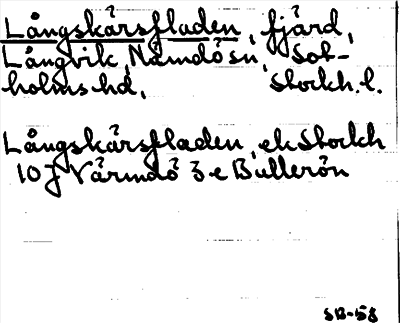 Långskärsfladen, fjärd,
Långvik, Nämdö sn, Sot-
holms hd, Stockh. l.
Långskärsfladen, ek Stockh
10 J Värmdö 3 e Bullerön
SB-58